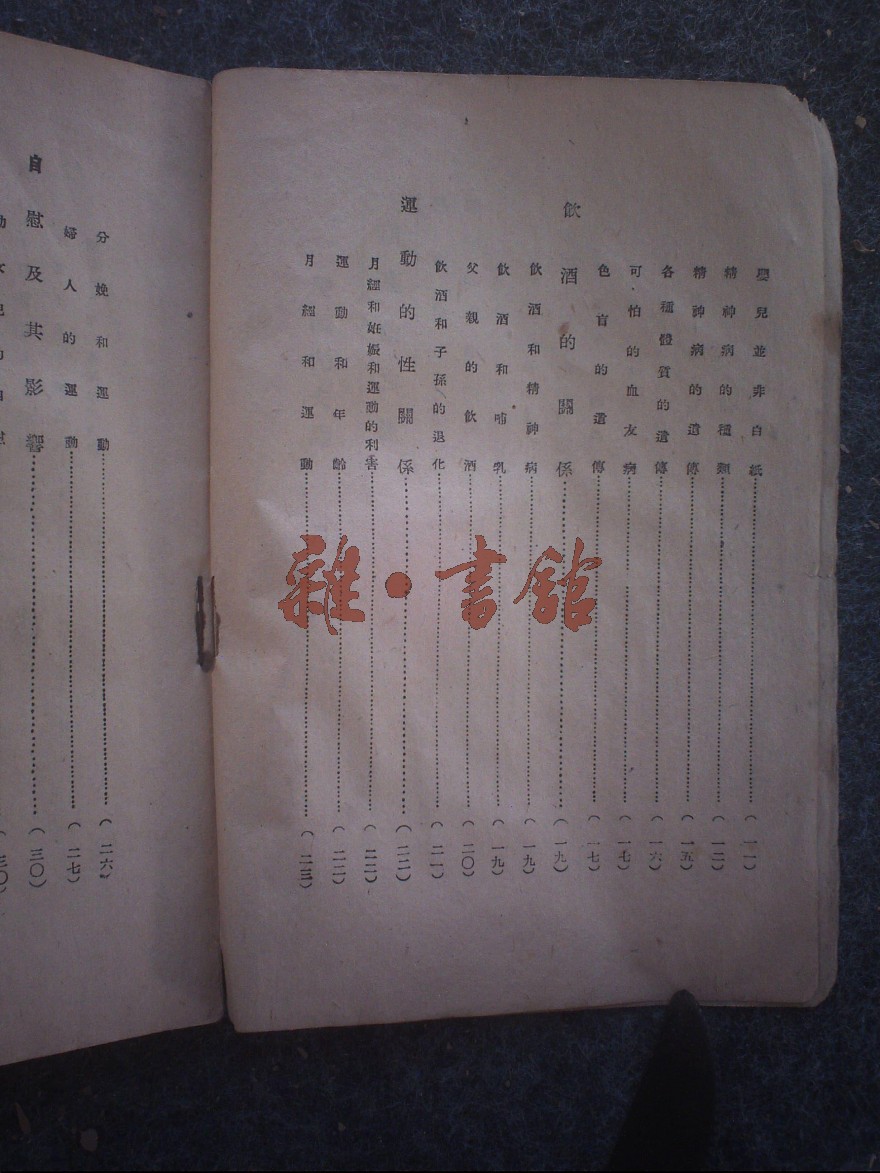 嬰兒並非白紙………（一一）
精神病的種類………（一二）
精神病的遺傳………（一五）
各種體質的遺傳………（一六）
可怕的血友病………（一七）
色盲的遺傳………（一七）
飲酒的關係………（一九）
飲酒和精神病………（一九）
飲酒和哺乳………（一九）
父親的飲酒………（二〇）
飲酒和子孫的退化………（二一）
運動的性關係………（二二）
月經和妊娠和運動的利害………（二二）
運動和年齡………（二二）
月經和運動………（二三）
分娩和運動………（二六）
婦人的運動………（二七）
自慰及其影響………（三〇）
雜·書館